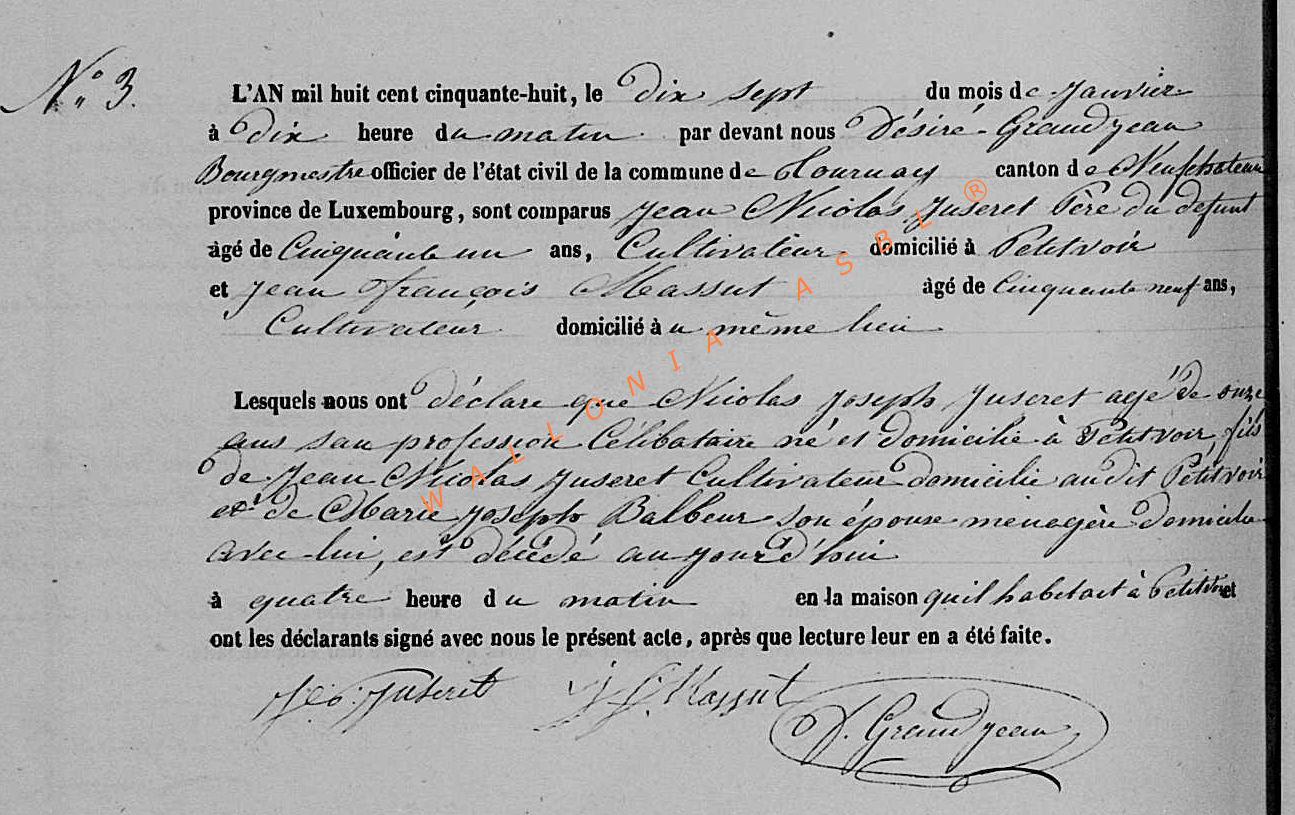 N° 3.
L'AN mil huit cent cinquante-huit, le dix sept du mois de Janvier
à dix heure du matin par devant nous Désiré Grandjean
Bourgmestre officier de l'état civil de la commune de Tournay canton de Neufchateau
province de Luxembourg, sont comparus Jean Nicolas Juseret Père du defunt
âgé de Cinquante un ans, Cultivateur domicilié à Petitvoir
et Jean François Massut âgé de Cinquante neuf ans,
Cultivateur domicilié au même lieu
Lesquels nous ont déclaré que Nicolas Joseph Juseret agé de onze
ans san profession Célibataire né et domicilié à Petitvoir fils
de Jean Nicolas Juseret Cultivateur domicilié audit Petitvoir
et de Marie Joseph Balbeur son épouse menagère domicilié
avec lui, est décédé aujourd'hui
à quatre heure du matin en la maison quil habitait à Petitvoir et
ont les déclarants signé avec nous le présent acte, après que lecture leur en a été faite.
Juseret J. f. Massut
D. Grandjean
WALLONIA ASBL ®